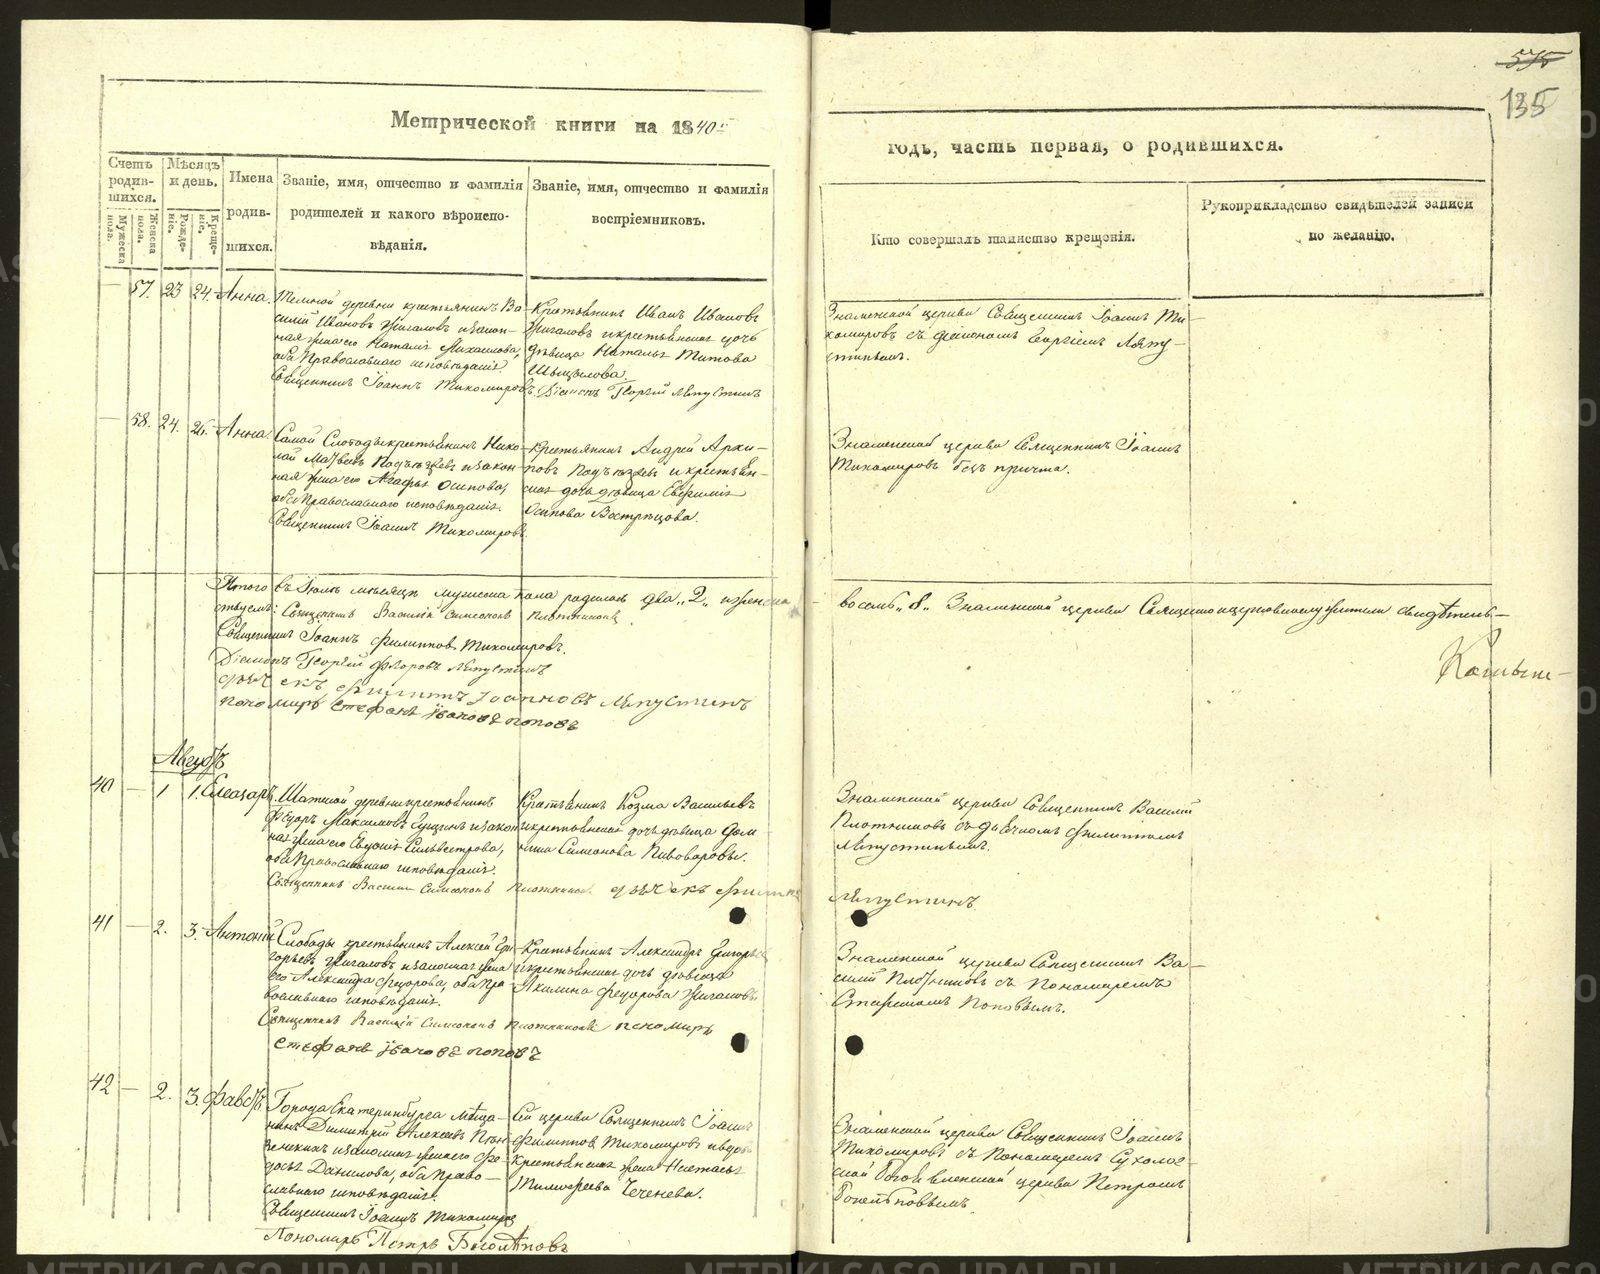 575
135
Метрической книги на 1840й
годъ, часть первая, о родившихся.
Счетъ родив-шихся.
Мужеска пола.
Женска пола.
Мѣсяцъ и день.
Рожде-нiе.
Креще-нiе.
Имена родив-шихся.
Званiе, имя, отчество и фамилiя
родителей и какого вѣроиспо-
вѣданiя.
Званiе, имя, отчество и фамилiя
воспрiемниковъ.
Кто совершалъ таинство крещенiя.
Рукоприкладство свидѣтелей записи
по желанiю.
57. 23 24. Анна.
деревни крестьянинъ Ва-
силiй Ивановъ Жигаловъ и закон-
ная жена его Наталiя Михаилова,
оба Православнаго исповѣданiя
Священникъ Iоаннъ Тихомировъ. Дiаконъ Георгiй Ляпустинъ
Крестьянинъ Иванъ Ивановъ
Жигаловъ и крестьянская дочь
дѣвица Наталья Титова
Знаменской церкви Священникъ Iоаннъ Ти-
хомировъ съ дiакономъ Георгiемъ Ляпу-
стинымъ.
58. 24. 26. Анна.
Самой Слободы крестьянинъ Нико-
лай Матвѣевъ и закон-
ная жена его Агафья Осипова,
оба Православнаго исповѣданiя.
Священникъ Iоаннъ Тихомировъ.
Крестьянинъ Андрей Архи-
повъ и крестьян-
ская дочь дѣвица Евфимiя
Осипова Вострецова.
Знаменской церкви Священникъ Iоаннъ
Тихомировъ безъ причта.
Итого въ Iюлѣ мѣсяцѣ мужеска пола родилось два „2„ и женска
восемь „8„ Знаменской церкви Священноцерковнослужители свидѣтель-
ствуемъ: Священникъ Василiй Симеоновъ Плотниковъ
Священникъ Iоаннъ Филипповъ Тихомировъ.
Дiаконъ Георгiй Флоровъ Ляпустинъ
дьячекъ Филиппъ Iоанновъ Ляпустинъ
пономарь Стефанъ Ивановъ Поповъ
Августъ
40 — 1 1. Елеазаръ.
Шатской деревни крестьянинъ
Ѳедоръ Максимовъ и закон-
ная жена его Евдокiя Сильвестрова,
оба Православнаго исповѣданiя.
Священникъ Василiй Симеоновъ Плотниковъ. дьячекъ Филиппъ
Ляпустинъ.
Крестьянинъ Козма Васильевъ
и крестьянская дочь дѣвица Дом-
ника Симеонова Пивоваровы.
Знаменской церкви Священникъ Василiй
Плотниковъ съ дьячкомъ Филиппомъ
Ляпустинымъ.
41 — 2. 3. Антонiй
Слободы крестьянинъ Алексѣй Гри-
горьевъ Жигаловъ и законная жена
его Александра Ѳедорова, оба Пра-
вославнаго исповѣданiя.
Священникъ Василiй Симеоновъ Плотниковъ пономарь
Стефанъ Ивановъ Поповъ
Крестьянинъ Александръ Григорьевъ
и крестьянская дочь дѣвица
Акилина Ѳедорова Жигаловы.
Знаменской церкви Священникъ Ва-
силiй Плотниковъ съ Пономаремъ
Стефаномъ Поповымъ.
42 — 2. 3. Фавстъ
Города Екатеринбурга мѣща-
нинъ Димитрiй Алексѣевъ
и законная жена его Ѳео-
досья Данилова, оба Право-
славнаго исповѣданiя.
Священникъ Iоаннъ Тихомировъ
Пономарь Петръ Боголѣповъ
Сей церкви Священникъ Iоаннъ
Филипповъ Тихомировъ и вдова
крестьянская жена Настасья
Тимофеева Чеченева.
Знаменской церкви Священникъ Iоаннъ
Тихомировъ съ Пономаремъ Сухолож-
ской Богоявленской церкви Петромъ
Боголѣповымъ.